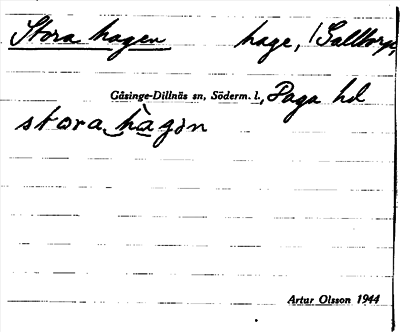 Stora hagen hage, (Galltorp,
Gåsinge-Dillnäs sn, Söderm. l., Daga hd
stora hàgɘn
Artur Olsson 1944